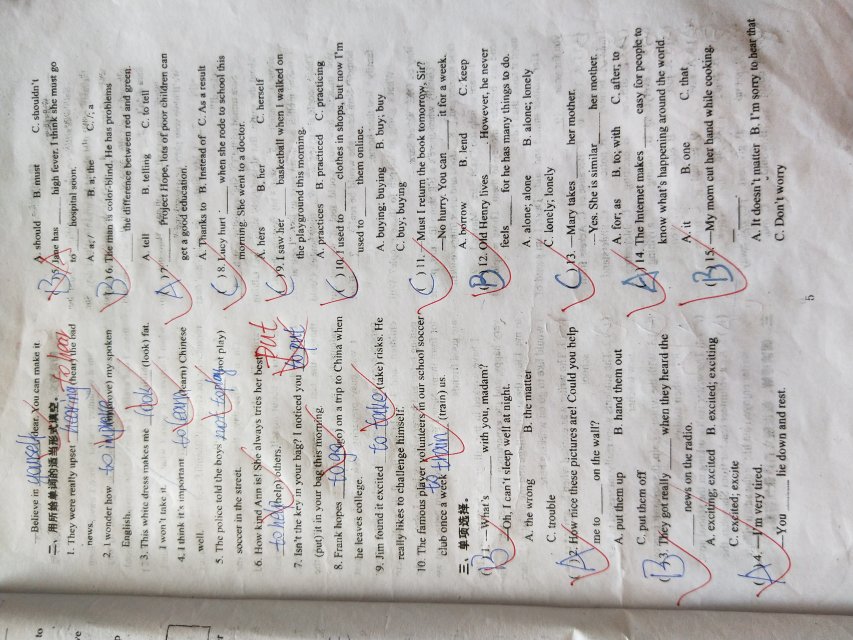 —Believe in yourself, dear. You can make it.
二、用所给单词的适当形式填空。
1. They were really upset hearing to hear (hear) the bad
news.
2. I wonder how to improve (improve) my spoken
English.
3. This white dress makes me look (look) fat.
I won't take it.
4. I think it's important to learn (learn) Chinese
well.
5. The police told the boys not to play (not play)
soccer in the street.
6. How kind Ann is! She always tries her best
to help (help) others.
7. Isn't the key in your bag? I noticed you to put put
(put) it in your bag this morning.
8. Frank hopes to go (go) on a trip to China when
he leaves college.
9. Jim found it excited to take (take) risks. He
really likes to challenge himself.
10. The famous player volunteers in our school soccer
club once a week to train (train) us.
三、单项选择。
(B) 1. —What's ______ with you, madam?
—Oh, I can't sleep well at night.
A. the wrong B. the matter
C. trouble
(A) 2. How nice these pictures are! Could you help
me to ______ on the wall?
A. put them up B. hand them out
C. put them off
(B) 3. They got really ______ when they heard the
______ news on the radio.
A. exciting; excited B. excited; exciting
C. excited; excite
(A) 4. —I'm very tired.
—You ______ lie down and rest.
A. should B. must C. shouldn't
(B) 5. Jane has ______ high fever. I think she must go
to ______ hospital soon.
A. a; B. a; the C. /; a
(B) 6. The man is color-blind. He has problems
______ the difference between red and green.
A. tell B. telling C. to tell
(A) 7. ______ Project Hope, lots of poor children can
get a good education.
A. Thanks to B. Instead of C. As a result
(C) 8. Lucy hurt ______ when she rode to school this
morning. She went to a doctor.
A. hers B. her C. herself
(C) 9. I saw her ______ basketball when I walked on
the playground this morning.
A. practices B. practiced C. practicing
(C) 10. I used to ______ clothes in shops, but now I'm
used to ______ them online.
A. buying; buying B. buy; buy
C. buy; buying
(C) 11. —Must I return the book tomorrow, Sir?
—No hurry. You can ______ it for a week.
A. borrow B. lend C. keep
(B) 12. Old Henry lives ______. However, he never
feels ______ for he has many things to do.
A. alone; alone B. alone; lonely
C. lonely; lonely
(C) 13. —Mary takes ______ her mother.
—Yes. She is similar ______ her mother.
A. for; as B. to; with C. after; to
(A) 14. The Internet makes ______ easy for people to
know what's happening around the world.
A. it B. one C. that
(B) 15. —My mom cut her hand while cooking.
—______.
A. It doesn't matter B. I'm sorry to hear that
C. Don't worry
5